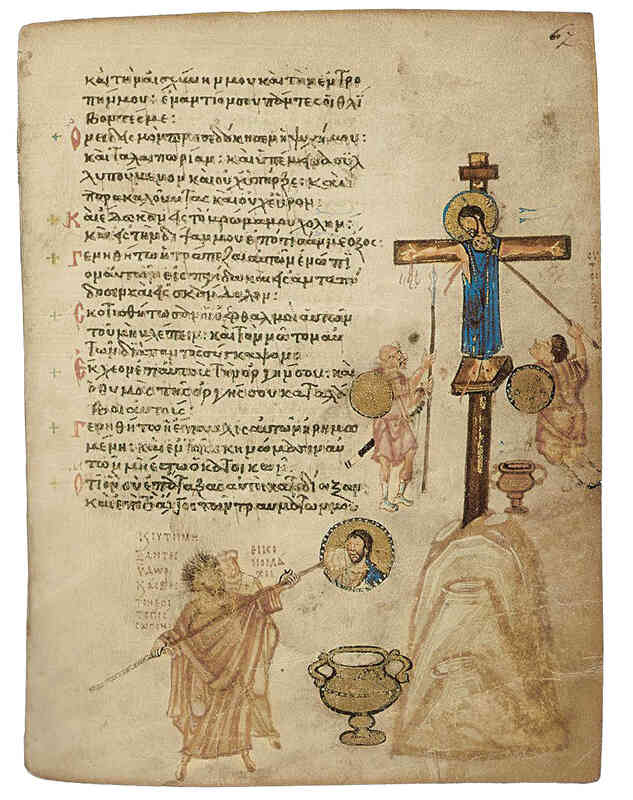 67
καὶ τὴν αἰσχύνην μου καὶ τὴν ἐντρο
πήν μου: ἐναντίον σου πάντες οἱ θλί
βοντές με:
Ὀνειδισμὸν προσεδόκησεν ἡ ψυχή μου:
καὶ ταλαιπωρίαν: καὶ ὑπέμεινα συλ
λυπούμενον καὶ οὐχ ὑπῆρξε: καὶ
παρακαλοῦντας καὶ οὐχ εὗρον:
Καὶ ἔδωκαν εἰς τὸ βρῶμά μου χολήν:
καὶ εἰς τὴν δίψαν μου ἐπότισάν με ὄξος:
Γενηθήτω ἡ τράπεζα αὐτῶν ἐνώπι
ον αὐτῶν εἰς παγίδα καὶ εἰς ἀνταπό
δοσιν καὶ εἰς σκάνδαλον:
Σκοτισθήτωσαν οἱ ὀφθαλμοὶ αὐτῶν
τοῦ μὴ βλέπειν: καὶ τὸν νῶτον αὐ
τῶν διὰ παντὸς σύγκαμψον
Ἔκχεον ἐπ' αὐτοὺς τὴν ὀργήν σου: καὶ
ὁ θυμὸς τῆς ὀργῆς σου καταλά
βοι αὐτούς:
Γενηθήτω ἡ ἔπαυλις αὐτῶν ἠρημω
μένη: καὶ ἐν τοῖς σκηνώμασιν αὐ
τῶν μὴ ἔστω ὁ κατοικῶν:
Ὅτι ὃν σὺ ἐπάταξας αὐτοὶ κατεδίωξαν
καὶ ἐπὶ τὸ ἄλγος τῶν τραυμάτων μου